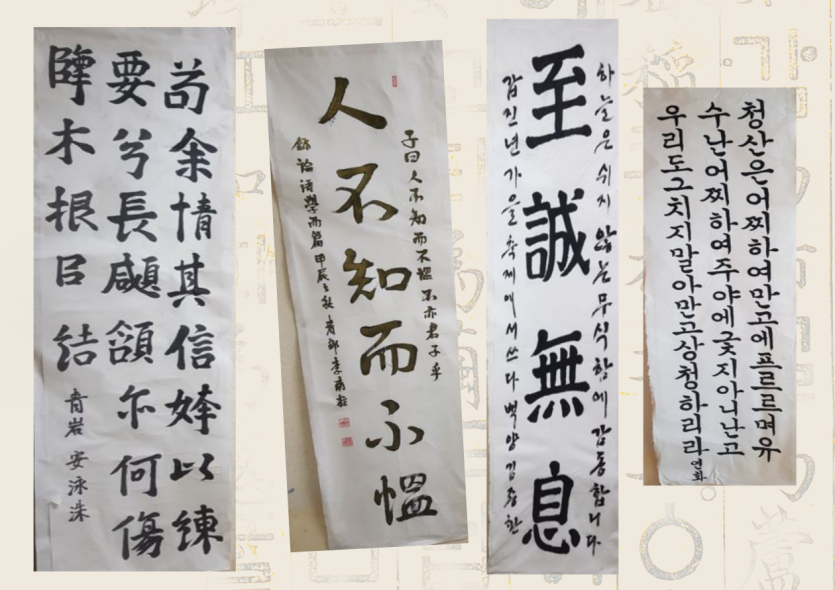 苟余情其信姱以練
要兮長顑頷尓何傷
擥木根㠯結
青岩 安泳洙
子曰人不知而不慍不亦君子乎
人不知而不慍
錄論語學而篇 甲辰立秋
하늘은 쉬지 않는 무식함에 감동합니다
至誠無息
갑진년 가을 축제에서 쓰다 백양 김종한
청산은어찌하여만고에프르르며유
수난어찌하여주야에긋지아니난고
우리도그치지말아만고상청하리라 연화